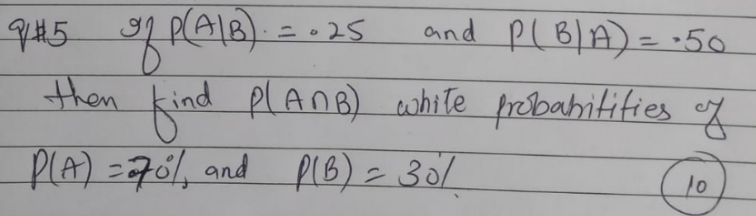 Q#5 If P(A|B) = .25 and P(B|A) = .50
then find P(A∩B) while probabitities of
P(A) = 70%, and P(B) = 30%
10